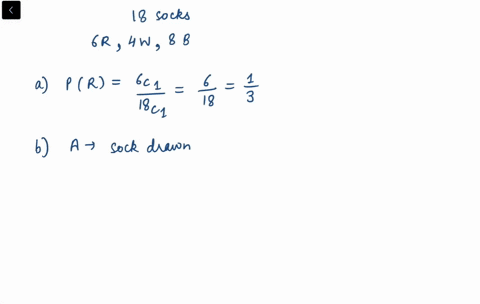 18 socks
6R, 4W, 8B
a) P(R) = 6C1/18C1 = 6/18 = 1/3
b) A → sock drawn